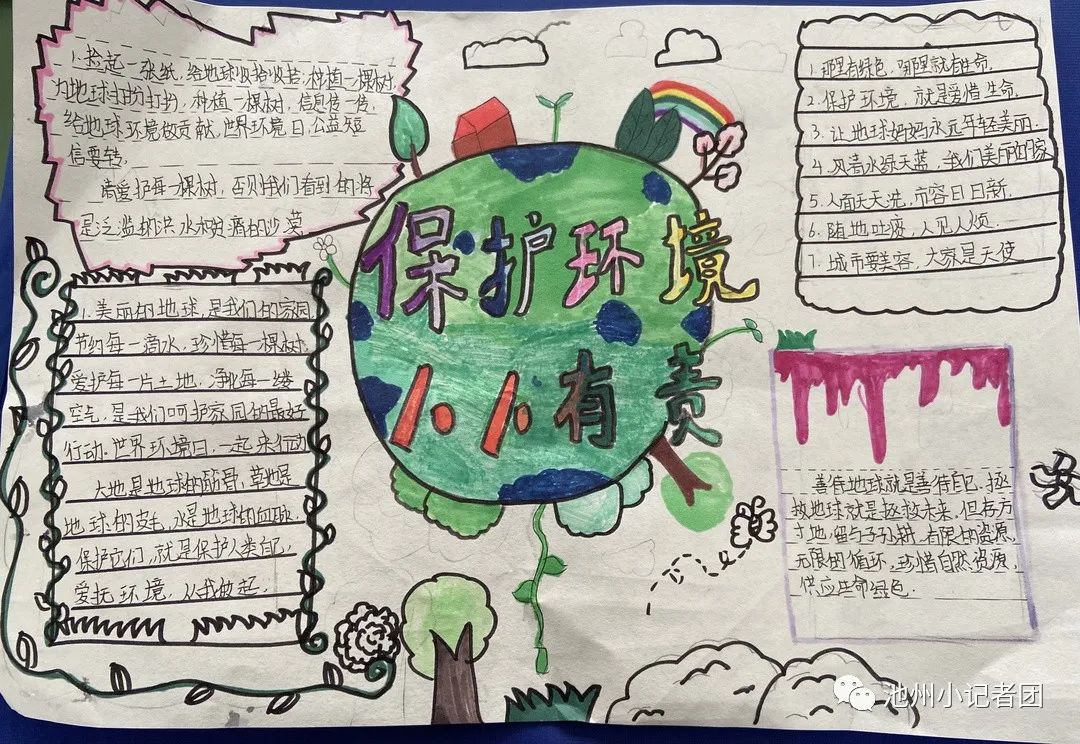 1.捡起一张纸,给地球收拾收拾;种植一棵树,
为地球打扮打扮,种植一棵树,信息传一传,
给地球环境做贡献,世界环境日,公益短
信要转,
请爱护每一棵树,否则我们看到的将
是泛滥的洪水和的沙漠
保护环境
人人有责
1.那里有绿色,哪里就有生命,
2.保护环境,就是爱惜生命,
3.让地球妈妈永远年轻美丽
4.风清水绿天蓝,我们美丽的家
5.人面天天洗,市容日日新.
6.随地吐痰,人见人烦.
7.城市要美容,大家是天使
1.美丽的地球,是我们的家园
节约每一滴水,珍惜每一棵树,
爱护每一片土地,净化每一缕
空气,是我们呵护家园的最好
行动.世界环境日,一起来行动
大地是地球的筋骨,草地是
地球的皮毛,水是地球的血脉
保护它们,就是保护人类自己,
爱护环境,从我做起.
善待地球就是善待自己.拯
救地球就是拯救未来,但存方
寸地,留与子孙耕,有限的资源,
无限的循环,珍惜自然资源,
供应生命绿色.
池州小记者团